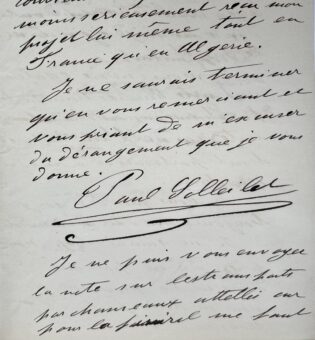 sérieusement revu mon
projet lui même tant en
France qu'en Algérie.
Je ne saurais terminer
qu'en vous remerciant et
vous priant de m'excuser
du dérangement que je vous
donne.
Paul Soleillet
Je ne puis vous envoyer
la note sur les transports
par chameaux attelés car
pour la me faut